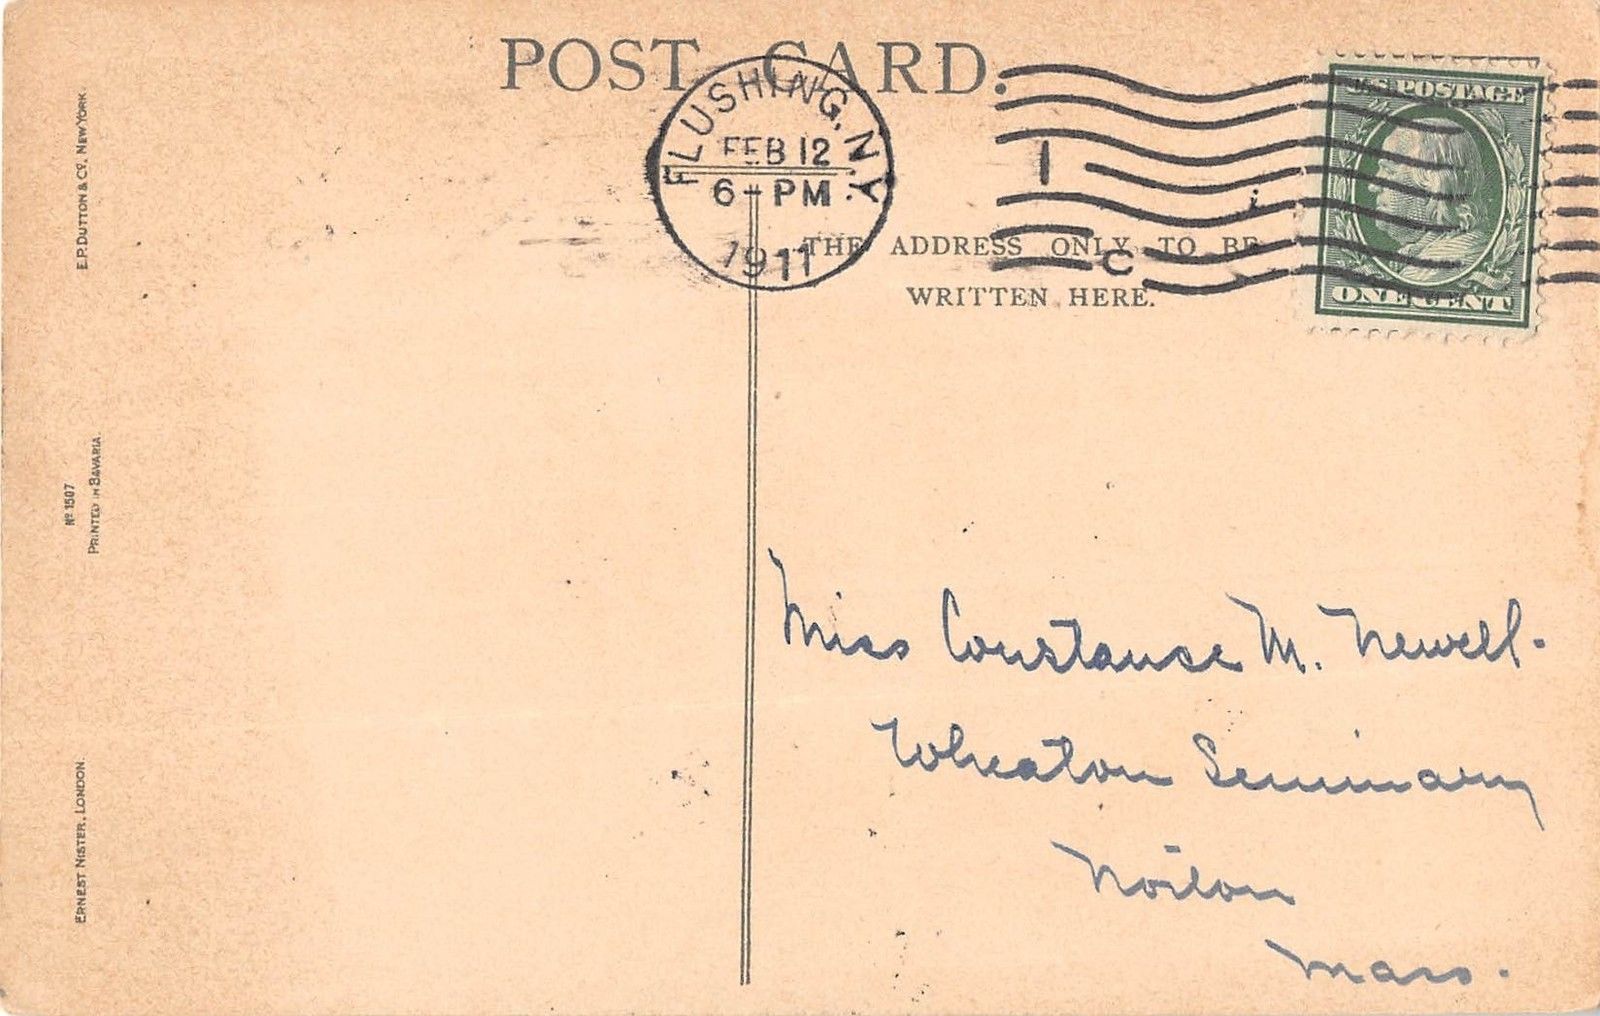 POST CARD.
FLUSHING, N.Y.
FEB 12
6 - PM
1911
U.S. POSTAGE
ONE CENT
1
C
THE ADDRESS ONLY TO BE
WRITTEN HERE.
E.P. DUTTON & Co. NEW YORK.
No 1507
PRINTED IN BAVARIA.
ERNEST NISTER, LONDON.
Miss Constance M. Newell.
Wheaton Seminary
Norton
Mass.